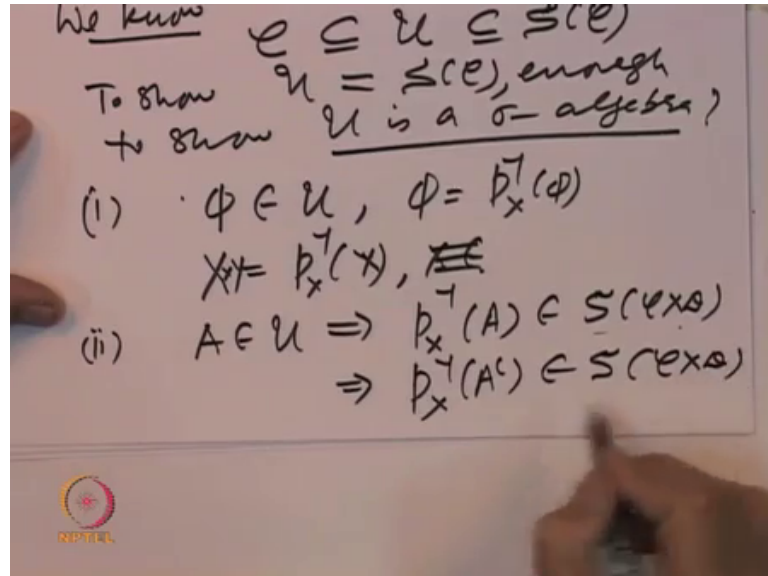 We know 𝒞 ⊆ 𝒰 ⊆ S(𝒞)
To show 𝒰 = S(𝒞), enough
to show 𝒰 is a σ-algebra?
(i) ϕ ∈ 𝒰, ϕ = p_X^{-1}(ϕ)
X×Y = p_X^{-1}(X),
(ii) A ∈ 𝒰 ⇒ p_X^{-1}(A) ∈ S(𝒞×𝒟)
⇒ p_X^{-1}(A^c) ∈ S(𝒞×𝒟)
NPTEL